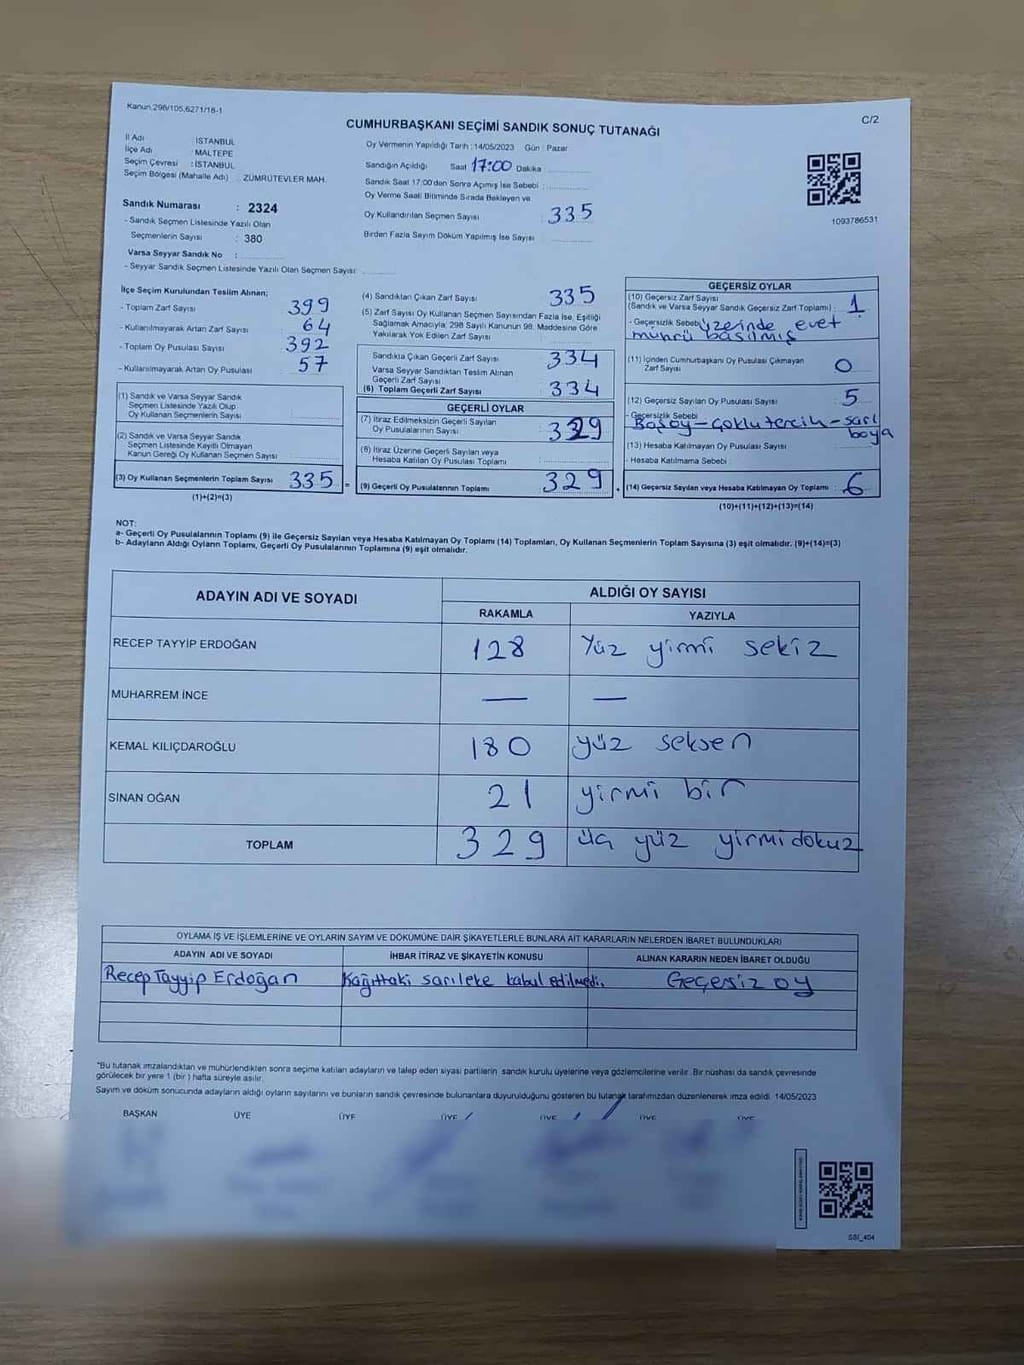 Kanun.298/105,6271/18-1
CUMHURBAŞKANI SEÇİMİ SANDIK SONUÇ TUTANAĞI
C/2
İl Adı : İSTANBUL
İlçe Adı : MALTEPE
Seçim Çevresi : İSTANBUL
Seçim Bölgesi (Mahalle Adı) : ZÜMRÜTEVLER MAH.
Oy Vermenin Yapıldığı Tarih :14/05/2023 Gün : Pazar
Sandığın Açıldığı Saat 17:00 Dakika
Sandık Saat 17:00'den Sonra Açımış İse Sebebi :
Oy Verme Saati Bitiminde Sırada Bekleyen ve
Oy Kullandırılan Seçmen Sayısı : 335
Birden Fazla Sayım Döküm Yapılmış İse Sayısı :
1093786531
Sandık Numarası : 2324
- Sandık Seçmen Listesinde Yazılı Olan
Seçmenlerin Sayısı : 380
Varsa Seyyar Sandık No :
- Seyyar Sandık Seçmen Listesinde Yazılı Olan Seçmen Sayısı :
İlçe Seçim Kurulundan Teslim Alınan;
- Toplam Zarf Sayısı : 399
- Kullanılmayarak Artan Zarf Sayısı : 64
- Toplam Oy Pusulası Sayısı : 392
- Kullanılmayarak Artan Oy Pusulası : 57
(1) Sandık ve Varsa Seyyar Sandık
Seçmen Listesinde Yazılı Olup
Oy Kullanan Seçmenlerin Sayısı :
(2) Sandık ve Varsa Seyyar Sandık
Seçmen Listesinde Kayıtlı Olmayan
Kanun Gereği Oy Kullanan Seçmen Sayısı :
(3) Oy Kullanan Seçmenlerin Toplam Sayısı : 335
(1)+(2)=(3)
(4) Sandıktan Çıkan Zarf Sayısı : 335
(5) Zarf Sayısı Oy Kullanan Seçmen Sayısından Fazla İse, Eşitliği
Sağlamak Amacıyla; 298 Sayılı Kanunun 98. Maddesine Göre
Yakılarak Yok Edilen Zarf Sayısı :
Sandıkta Çıkan Geçerli Zarf Sayısı : 334
Varsa Seyyar Sandıktan Teslim Alınan
Geçerli Zarf Sayısı :
(6) Toplam Geçerli Zarf Sayısı : 334
GEÇERLİ OYLAR
(7) İtiraz Edilmeksizin Geçerli Sayılan
Oy Pusulalarının Sayısı : 329
(8) İtiraz Üzerine Geçerli Sayılan veya
Hesaba Katılan Oy Pusulası Toplamı :
(9) Geçerli Oy Pusulalarının Toplamı : 329
GEÇERSİZ OYLAR
(10) Geçersiz Zarf Sayısı
(Sandık ve Varsa Seyyar Sandık Geçersiz Zarf Toplamı) : 1
- Geçersizlik Sebebi : üzerinde evet
mührü basılmış
(11) İçinden Cumhurbaşkanı Oy Pusulası Çıkmayan
Zarf Sayısı : 0
(12) Geçersiz Sayılan Oy Pusulası Sayısı : 5
- Geçersizlik Sebebi
Boşoy-çoklu tercih-sarı
boya
(13) Hesaba Katılmayan Oy Pusulası Sayısı :
- Hesaba Katılmama Sebebi :
(14) Geçersiz Sayılan veya Hesaba Katılmayan Oy Toplamı : 6
(10)+(11)+(12)+(13)=(14)
NOT:
a- Geçerli Oy Pusulalarının Toplamı (9) ile Geçersiz Sayılan veya Hesaba Katılmayan Oy Toplamı (14) Toplamları, Oy Kullanan Seçmenlerin Toplam Sayısına (3) eşit olmalıdır. (9)+(14)=(3)
b- Adayların Aldığı Oyların Toplamı, Geçerli Oy Pusulalarının Toplamına (9) eşit olmalıdır.
ADAYIN ADI VE SOYADI
ALDIĞI OY SAYISI
RAKAMLA YAZIYLA
RECEP TAYYİP ERDOĞAN 128 Yüz yirmi sekiz
MUHARREM İNCE — —
KEMAL KILIÇDAROĞLU 180 yüz seksen
SİNAN OĞAN 21 yirmi bir
TOPLAM 329 üç yüz yirmidokuz
OYLAMA İŞ VE İŞLEMLERİNE VE OYLARIN SAYIM VE DÖKÜMÜNE DAİR ŞİKAYETLERLE BUNLARA AİT KARARLARIN NELERDEN İBARET BULUNDUKLARI
ADAYIN ADI VE SOYADI İHBAR İTİRAZ VE ŞİKAYETİN KONUSU ALINAN KARARIN NEDEN İBARET OLDUĞU
Recep Tayyip Erdoğan Kağıttaki sarı leke kabul edilmedi. Geçersiz oy
*Bu tutanak imzalandıktan ve mühürlendikten sonra seçime katılan adayların ve talep eden siyasi partilerin sandık kurulu üyelerine veya gözlemcilerine verilir. Bir nüshası da sandık çevresinde
görülecek bir yere 1 (bir) hafta süreyle asılır.
Sayım ve döküm sonucunda adayların aldığı oyların sayılarını ve bunların sandık çevresinde bulunanlara duyurulduğunu gösteren bu tutanak tarafımızdan düzenlenerek imza edildi. 14/05/2023
BAŞKAN ÜYE ÜYE ÜYE ÜYE ÜYE ÜYE
SSI_404